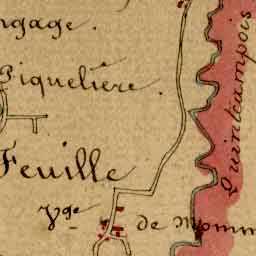 ngage.
Piquelière.
Feuille
Vge de Momm
Quintcampoix